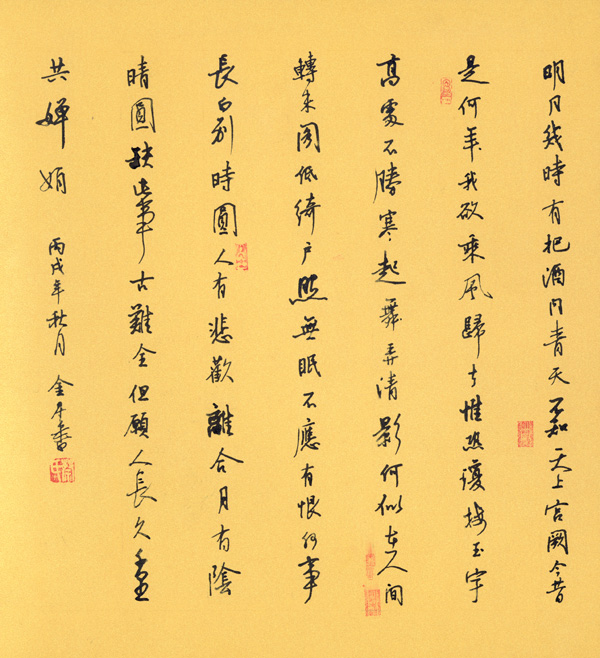 明月幾時有把酒問青天不知天上宮闕今昔
是何年我欲乘風歸去惟恐瓊樓玉宇
高處不勝寒起舞弄清影何似在人間
轉朱閣低綺戶照無眠不應有恨何事
長向別時圓人有悲歡離合月有陰
晴圓缺此事古難全但願人長久千里
共嬋娟
丙戌年秋月金書